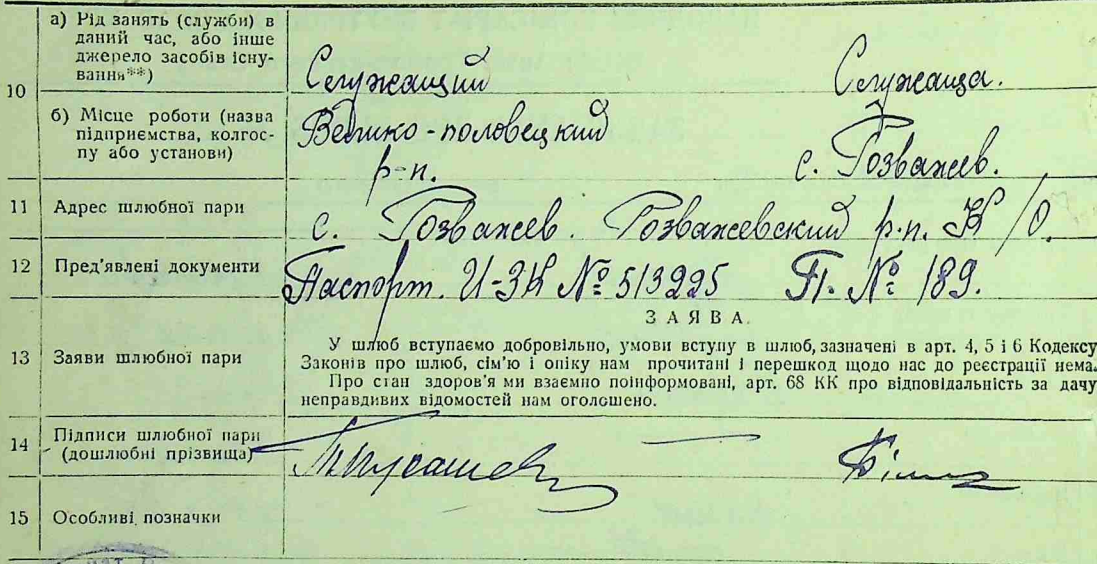 а) Рід занять (служби) в
даний час, або інше
джерело засобів існу-
вання**)
Служащий Служаща.
10
б) Місце роботи (назва
підприємства, колгос-
пу або установи)
Велико-половецкий
р-н.
с. Розважев.
11 Адрес шлюбної пари
с. Розважев. Розважевский р-н. К/О.
12 Пред'явлені документи
Паспорт. И-ЗК № 513225 П. № 189.
ЗАЯВА.
13 Заяви шлюбної пари
У шлюб вступаємо добровільно, умови вступу в шлюб, зазначені в арт. 4, 5 і 6 Кодексу
Законів про шлюб, сім'ю і опіку нам прочитані і перешкод щодо нас до реєстрації нема.
Про стан здоров'я ми взаємно поінформовані, арт. 68 КК про відповідальність за дачу
неправдивих відомостей нам оголошено.
14 Підписи шлюбної пари
(дошлюбні прізвища)
15 Особливі позначки